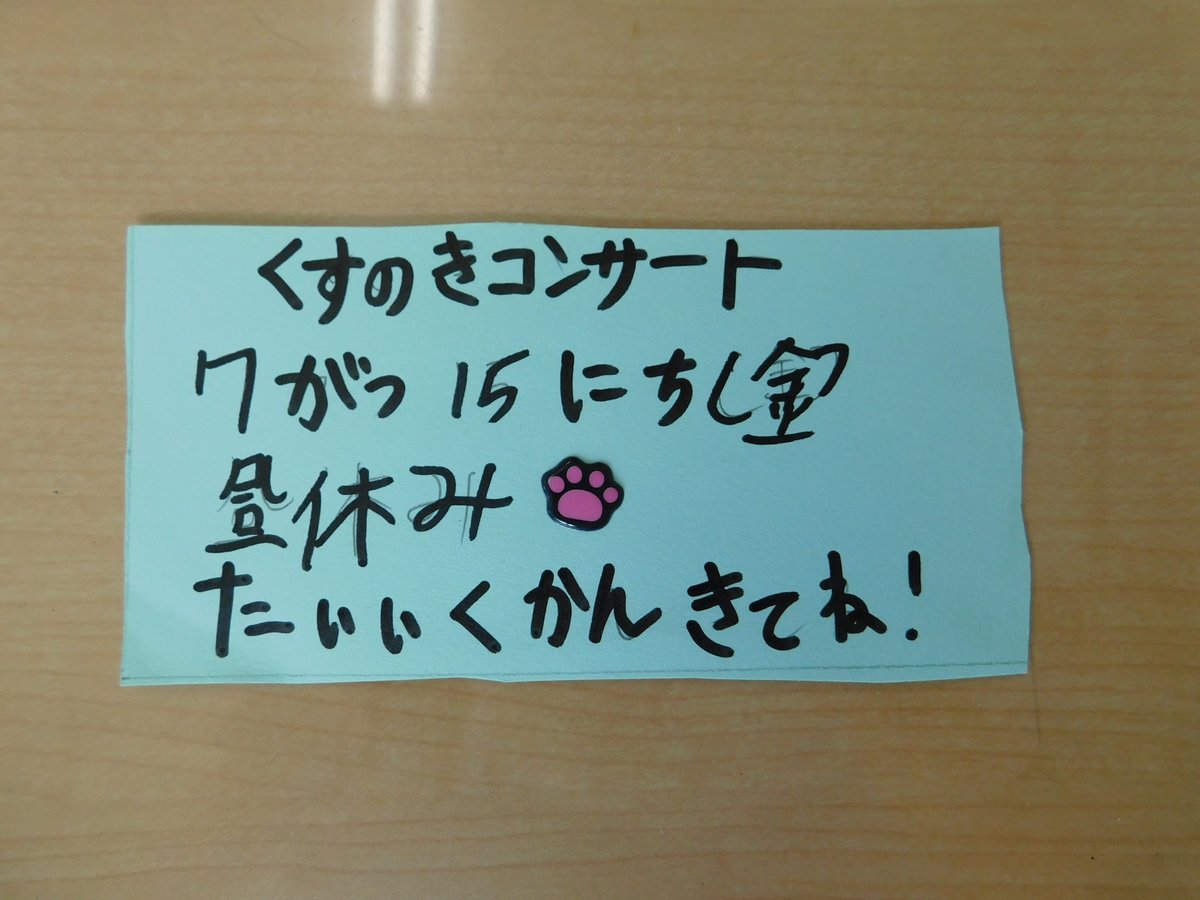 くすのきコンサート
7がつ15にち(金)
昼休み
たいいくかんきてね!